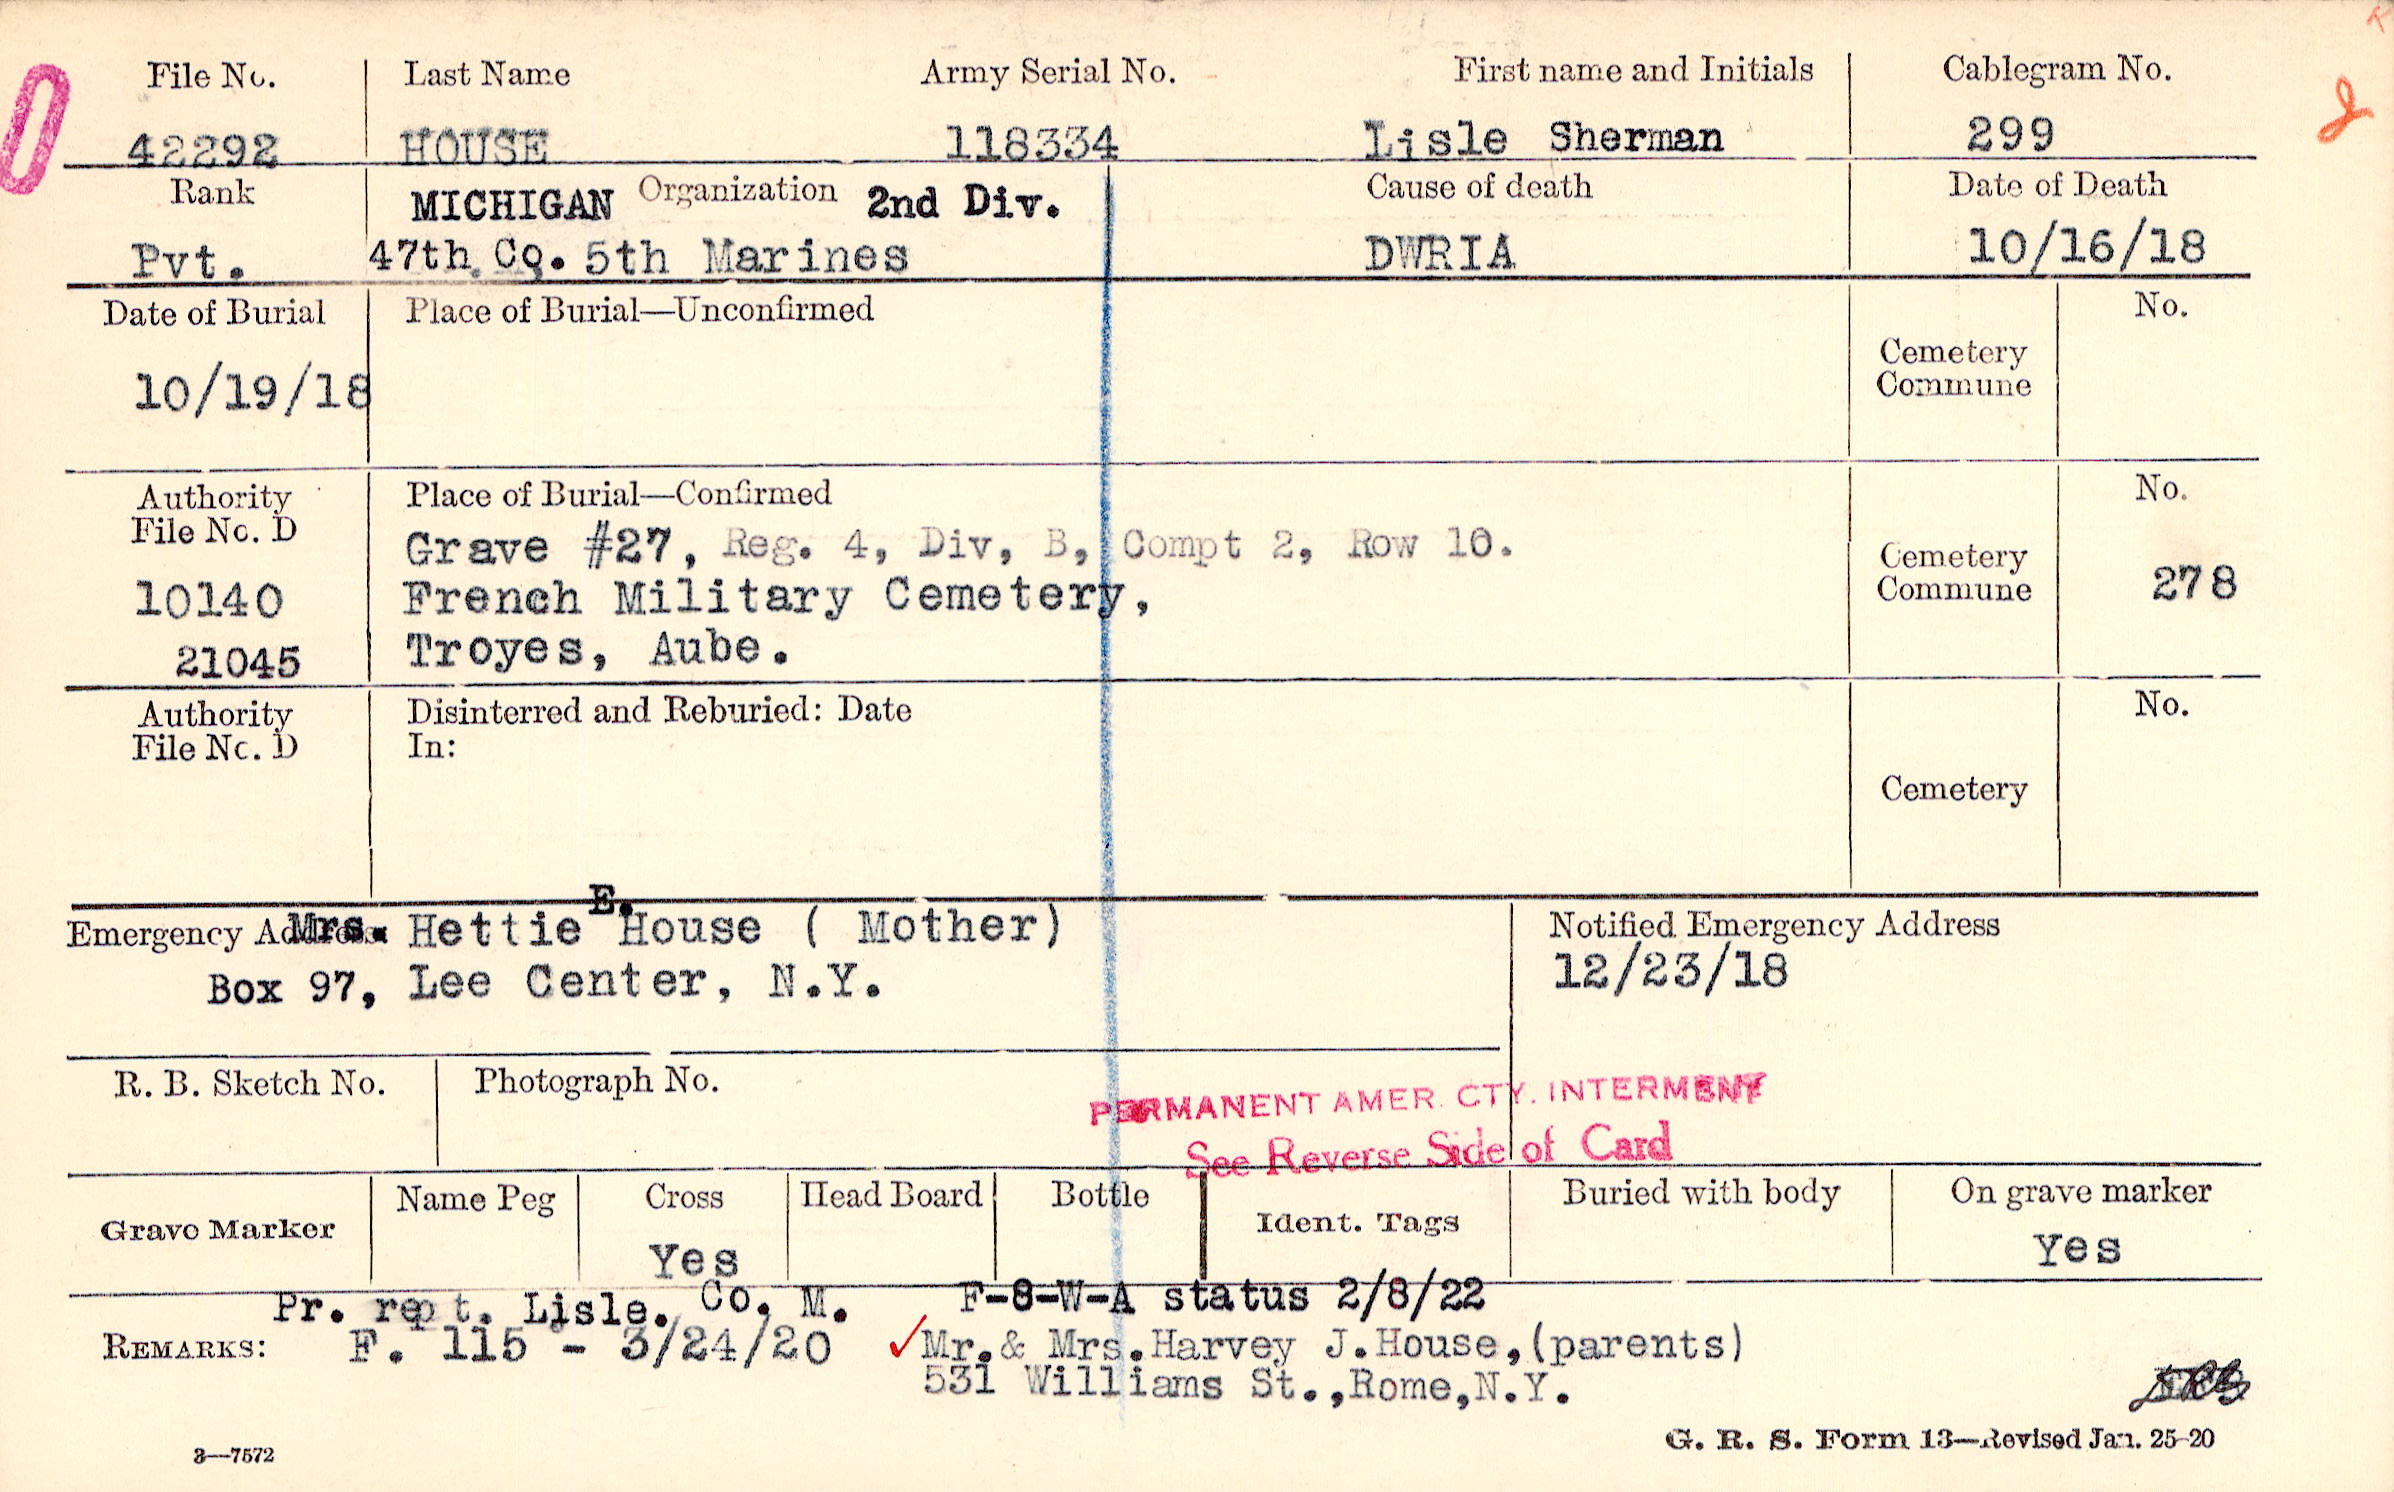 File No. Last Name Army Serial No. First name and Initials Cablegram No.
42292 HOUSE 118334 Lisle Sherman 299
Rank MICHIGAN Organization 2nd Div. Cause of death Date of Death
Pvt. 47th Co. 5th Marines DWRIA 10/16/18
Date of Burial Place of Burial—Unconfirmed No.
Cemetery
Commune
10/19/18
Authority Place of Burial—Confirmed No.
File No. D
Grave #27, Reg. 4, Div, B, Compt 2, Row 10.
Cemetery
Commune 278
10140 French Military Cemetery,
21045 Troyes, Aube.
Authority Disinterred and Reburied: Date No.
File No. D In:
Cemetery
Emergency Address Mrs. Hettie E. House ( Mother) Notified Emergency Address
Box 97, Lee Center, N.Y. 12/23/18
R. B. Sketch No. Photograph No.
PERMANENT AMER. CTY. INTERMENT
See Reverse Side of Card
Grave Marker Name Peg Cross Head Board Bottle Ident. Tags Buried with body On grave marker
Yes Yes
Pr. rept. Lisle. Co. M. F-8-W-A status 2/8/22
REMARKS: F. 115 - 3/24/20 ✓Mr.& Mrs.Harvey J.House,(parents)
531 Williams St.,Rome,N.Y.
3—7572 G. R. S. Form 13—Revised Jan. 25-20